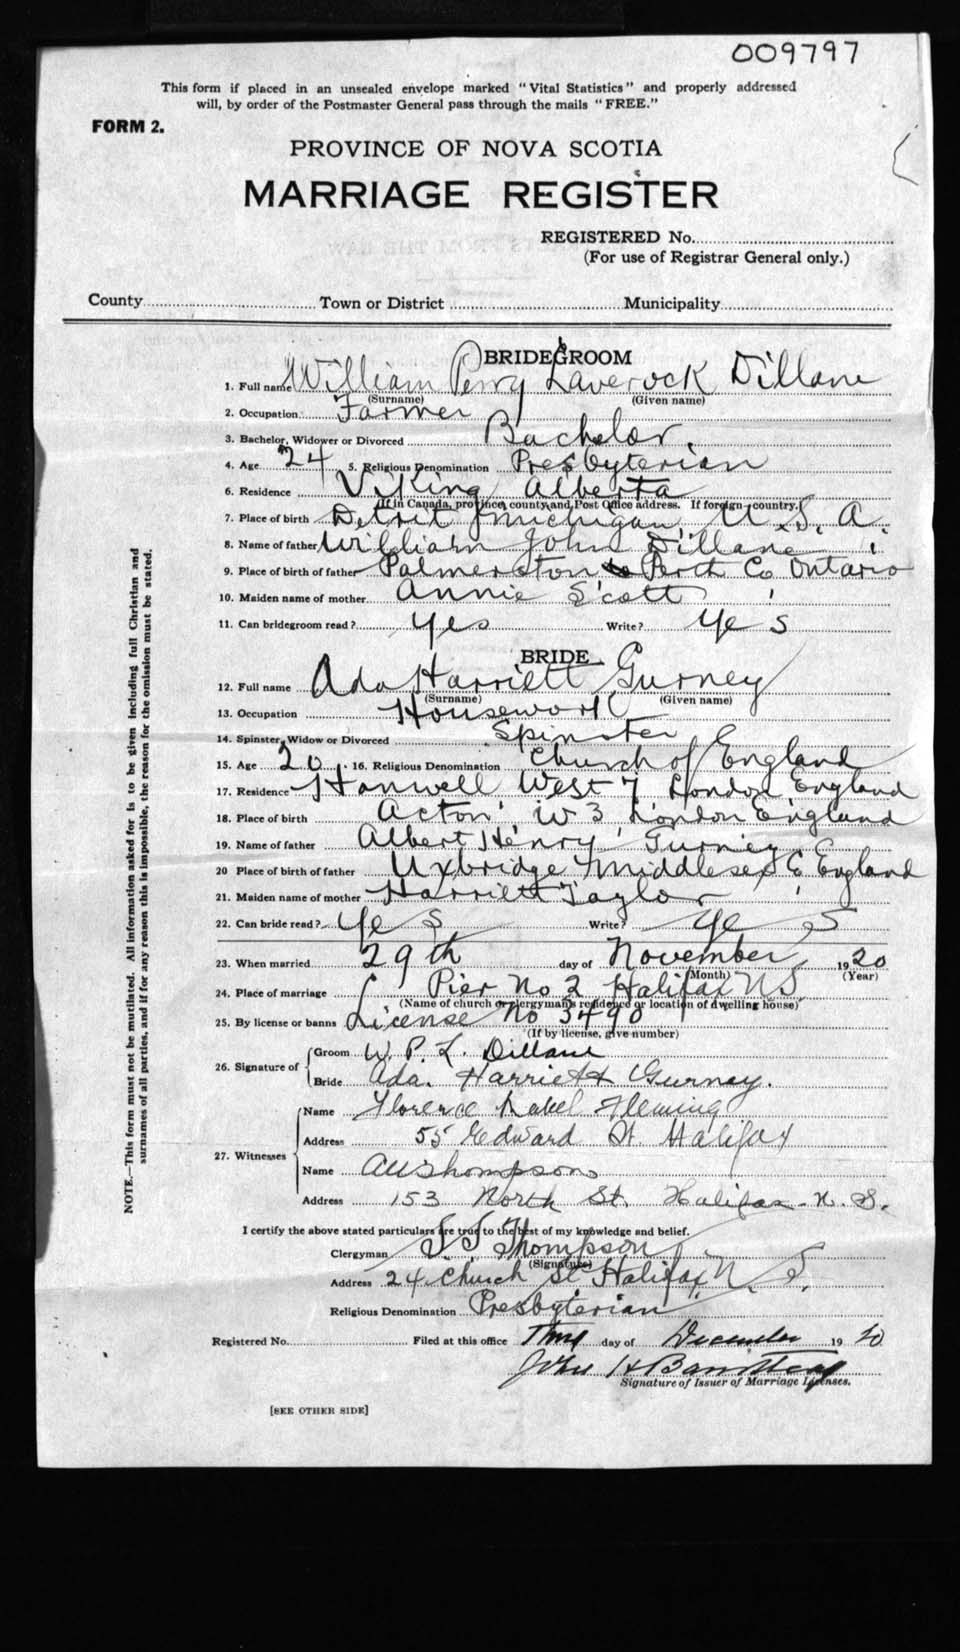 009797
This form if placed in an unsealed envelope marked "Vital Statistics" and properly addressed
will, by order of the Postmaster General pass through the mails "FREE."
FORM 2.
PROVINCE OF NOVA SCOTIA
MARRIAGE REGISTER
REGISTERED No.
(For use of Registrar General only.)
County Town or District Municipality
BRIDEGROOM
1. Full name William Perry Laverock Dillane
(Surname) (Given name)
2. Occupation Farmer
3. Bachelor, Widower or Divorced Bachelor.
4. Age 24 5. Religious Denomination Presbyterian
6. Residence Viking Alberta
(If in Canada, province, county and Post Office address. If foreign country.)
7. Place of birth Detroit Michigan, U.S.A.
8. Name of father William John Dillane
9. Place of birth of father Palmerston Perth Co Ontario
10. Maiden name of mother Annie Scott
11. Can bridegroom read? Yes Write? Yes
BRIDE
12. Full name Ada Harriett Gurney
(Surname) (Given name)
13. Occupation Housework
14. Spinster, Widow or Divorced Spinster
15. Age 20 16. Religious Denomination Church of England
17. Residence Hanwell West 7 London England
18. Place of birth Acton W 3 London England
19. Name of father Albert Henry Gurney
20 Place of birth of father Uxbridge Middlesex England
21. Maiden name of mother Harriett Taylor
22. Can bride read? Yes Write? Yes
23. When married 29th day of November 1920
(Month) (Year)
24. Place of marriage Pier No 2 Halifax N.S.
(Name of church or clergyman's residence or location of dwelling house)
25. By license or banns License No 3490
(If by license, give number)
26. Signature of
Groom W. P. L. Dillane
Bride Ada. Harriett Gurney.
27. Witnesses
Name Florence Mabel Fleming
Address 55 Edward St Halifax
Name Thompson
Address 153 North St. Halifax - N. S.
I certify the above stated particulars are true to the best of my knowledge and belief.
Clergyman Thompson
(Signature)
Address 24 Church St Halifax N. S.
Religious Denomination Presbyterian
Registered No. Filed at this office day of December 1920
John H
Signature of Issuer of Marriage Licenses.
[SEE OTHER SIDE]
NOTE.—This form must not be mutilated. All information asked for is to be given including full Christian and
surnames of all parties, and if for any reason this is impossible, the reason for the omission must be stated.